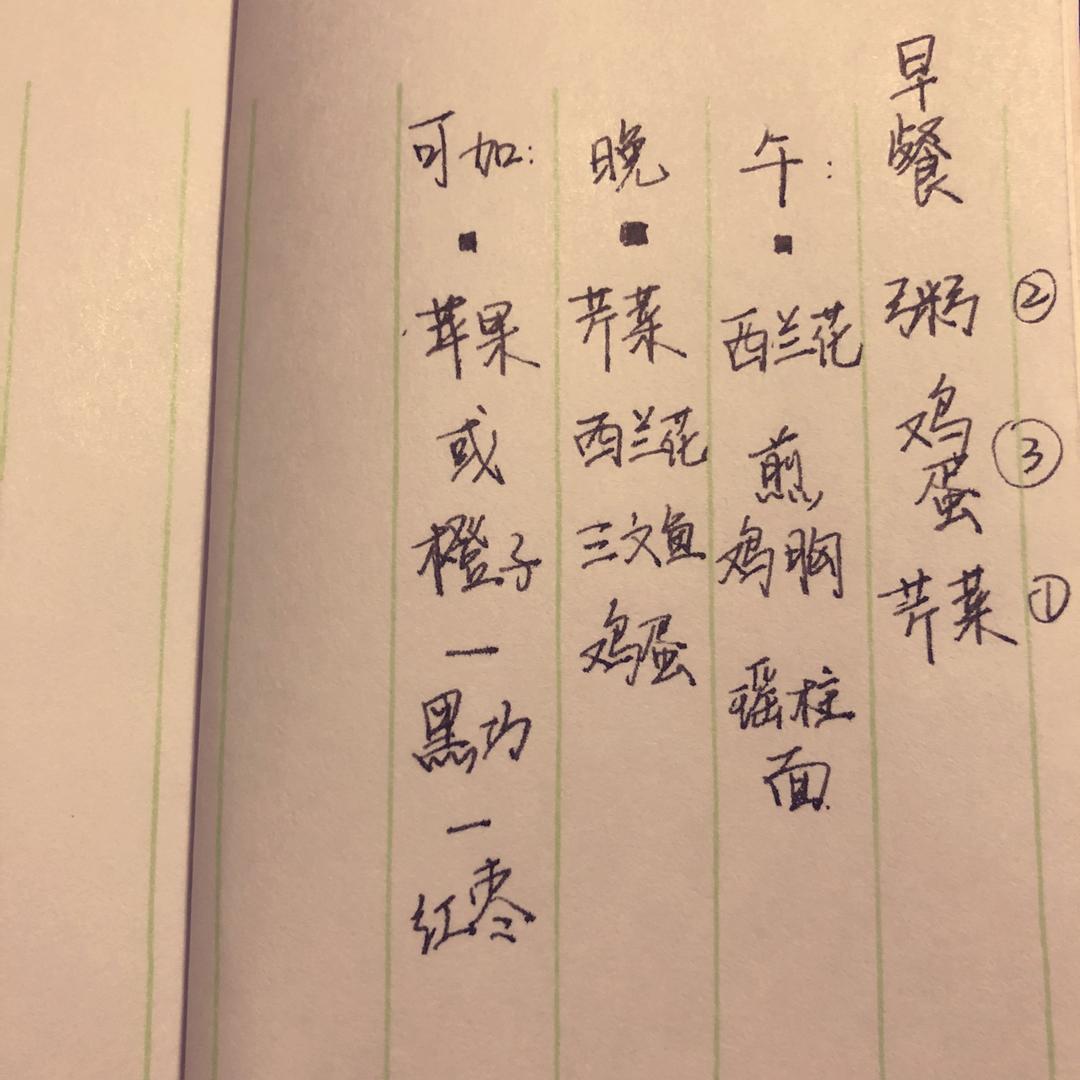 早餐
粥 ②
鸡蛋 ③
芹菜 ①
午:
西兰花
煎
鸡胸
瑶柱
面
晚
芹菜
西兰花
三文鱼
鸡蛋
可加:
苹果
或
橙子
一
黑巧
一
红枣